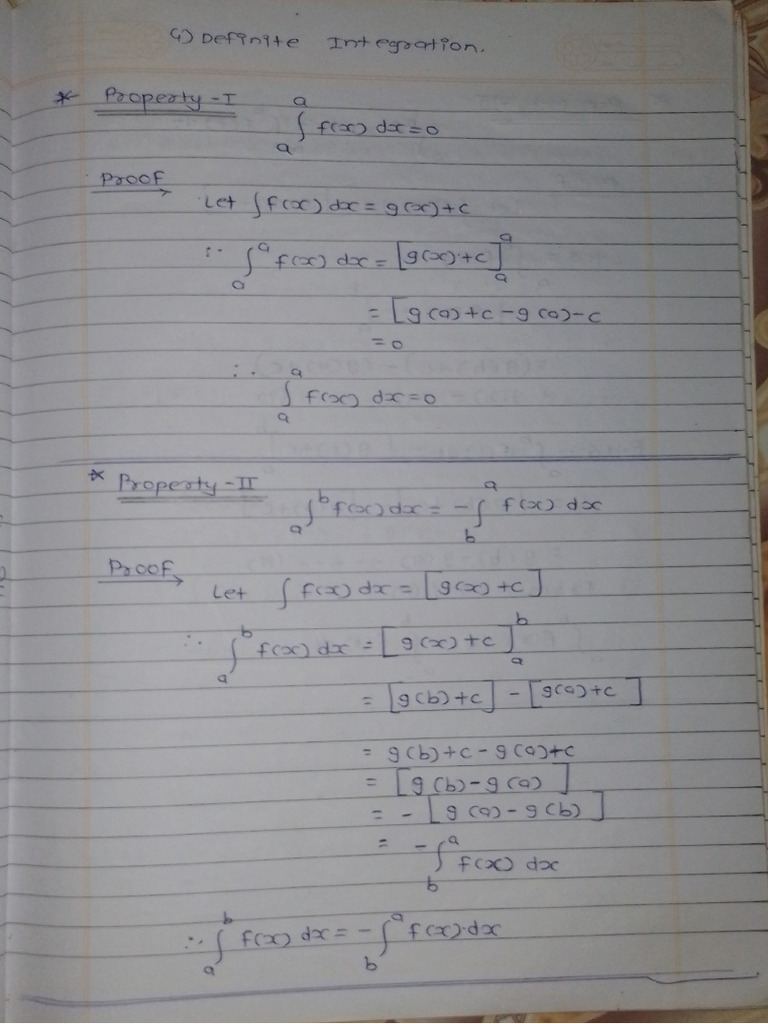 4) Definite Integration.
* Property-I
∫ₐᵃ f(x) dx = 0
Proof →
Let ∫f(x) dx = g(x)+c
∴ ∫ₐᵃ f(x) dx = [g(x)+c]ₐᵃ
= [g(a)+c-g(a)-c
= 0
∴ ∫ₐᵃ f(x) dx = 0
* Property-II
∫ₐᵇ f(x) dx = -∫_b^a f(x) dx
Proof →
Let ∫ f(x) dx = [g(x)+c]
∴ ∫ₐᵇ f(x) dx = [g(x)+c]ₐᵇ
= [g(b)+c] - [g(a)+c]
= g(b)+c-g(a)+c
= [g(b)-g(a)]
= -[g(a)-g(b)]
= -∫_b^a f(x) dx
∴ ∫ₐᵇ f(x) dx = -∫_b^a f(x)·dx